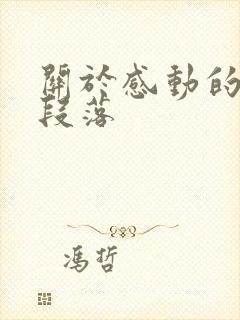 關於感動的
段落
馮哲